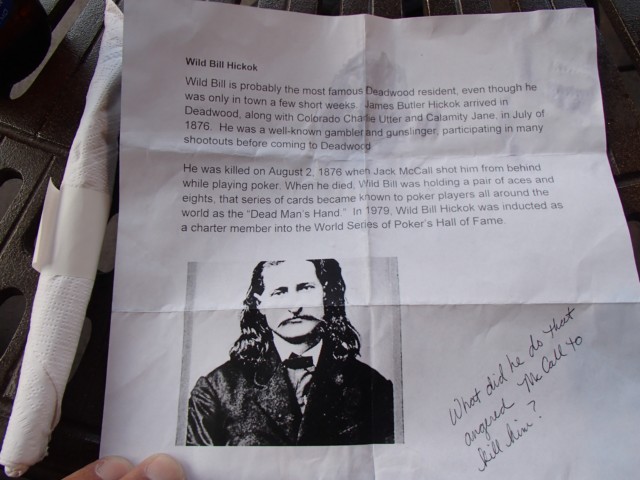 Wild Bill Hickok
Wild Bill is probably the most famous Deadwood resident, even though he
was only in town a few short weeks. James Butler Hickok arrived in
Deadwood, along with Colorado Charlie Utter and Calamity Jane, in July of
1876. He was a well-known gambler and gunslinger, participating in many
shootouts before coming to Deadwood
He was killed on August 2, 1876 when Jack McCall shot him from behind
while playing poker. When he died, Wild Bill was holding a pair of aces and
eights, that series of cards became known to poker players all around the
world as the "Dead Man's Hand." In 1979, Wild Bill Hickok was inducted as
a charter member into the World Series of Poker's Hall of Fame.
What did he do that
angered McCall to
kill him?